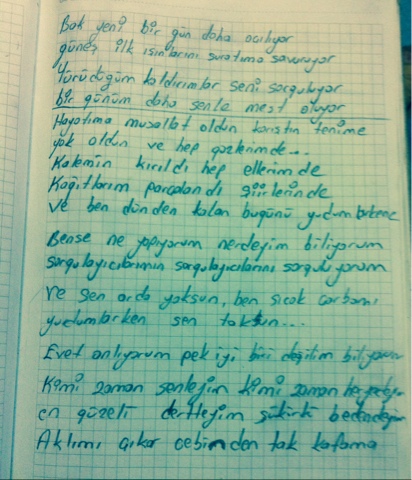 Bak yeni bir gün daha açılıyor
güneş ilk ışınlarını suratıma savuruyor
Yürüdüğüm kaldırımlar seni sorguluyor
bir günüm daha senle mest oluyor
Hayatıma musallat oldun karıştın tenime
yok oldun ve hep gözlerimde...
Kalemin kırıldı hep ellerimde
Kağıtlarım parçalandı şiirlerinde
ve ben dünden kalan bugünü yudumlarken
Bense ne yapıyorum nerdeyim biliyorum
sorgulayıcılarımın sorgulayıcılarını sorguluyorum
ve sen orda yoksun, ben sıcak çorbamı
yudumlarken sen toksun...
Evet anlıyorum pek iyi biri değilim biliyorum
Kimi zaman senleyim kimi zaman
en güzeli dertleyim
Aklımı çıkar cebimden tak kafama